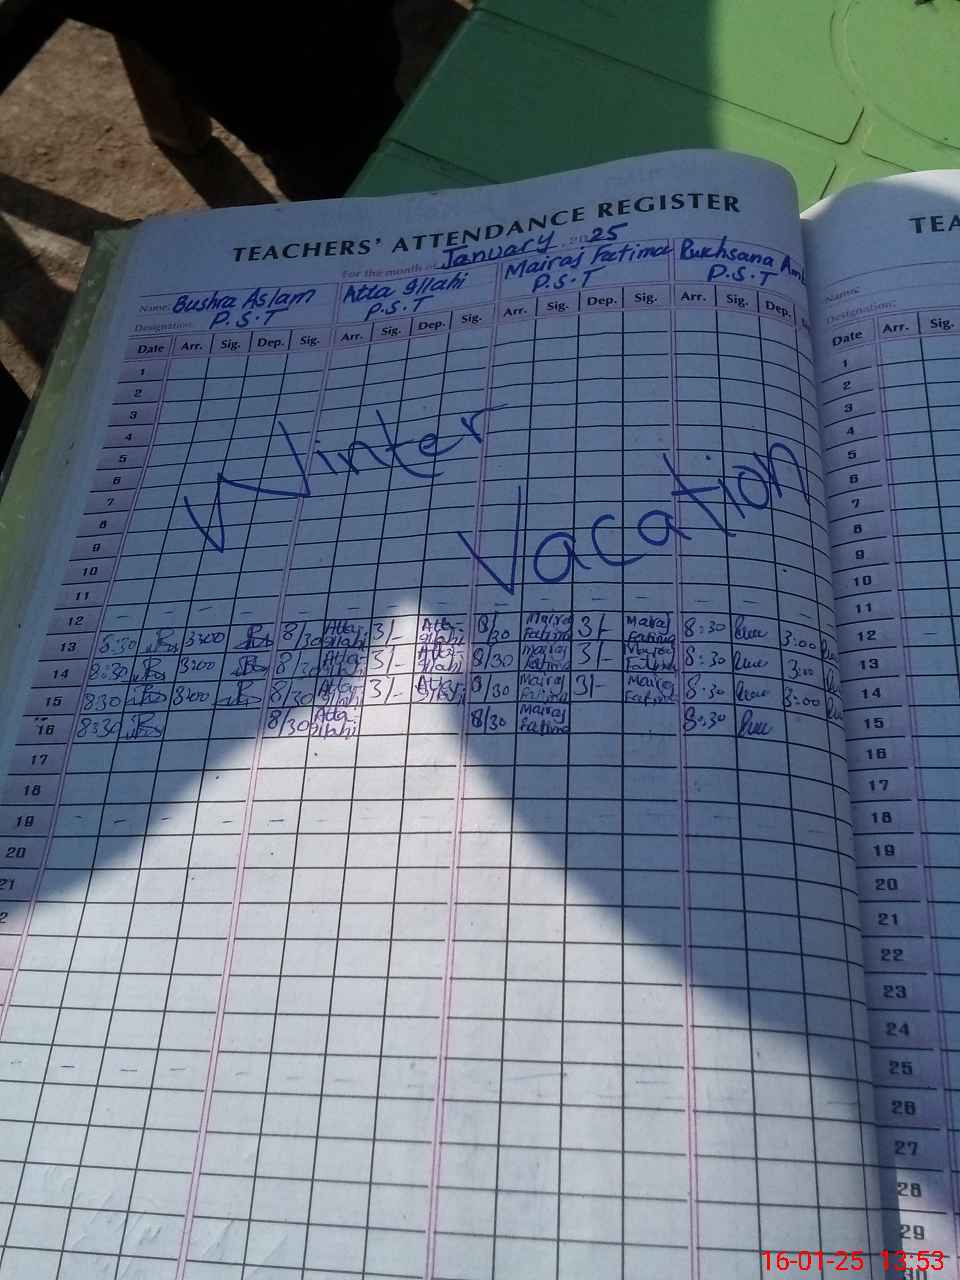 TEACHERS' ATTENDANCE REGISTER
For the month of January 2025
Name: Bushra Aslam Atta Illahi Mairaj Fatima Rukhsana
Designation: P.S.T P.S.T P.S.T P.S.T
Date Arr. Sig. Dep. Sig. Arr. Sig. Dep. Sig. Arr. Sig. Dep. Sig. Arr. Sig. Dep.
1
2
3
4
5
6
7
8
9
10
11
Winter
Vacation
12
13 8:30 3:00 8/30 Atta Illahi 3/- Atta Illahi 8/30 Mairaj Fatima 3/- Mairaj Fatima 8:30 3:00
14 8:30 3:00 8/30 Atta Illahi 3/- Atta Illahi 8/30 Mairaj Fatima 3/- Mairaj Fatima 8:30 3:00
15 8:30 3:00 8/30 Atta Illahi 3/- Atta Illahi 8/30 Mairaj Fatima 3/- Mairaj Fatima 8:30 3:00
16 8:30 8/30 Atta Illahi 8/30 Mairaj Fatima 8:30
17
18
19
20
21
2
TEA
Name:
Designation:
Date Arr. Sig.
1
2
3
4
5
6
7
8
9
10
11
12
13
14
15
16
17
18
19
20
21
22
23
24
25
26
27
28
29
30
16-01-25 13:53